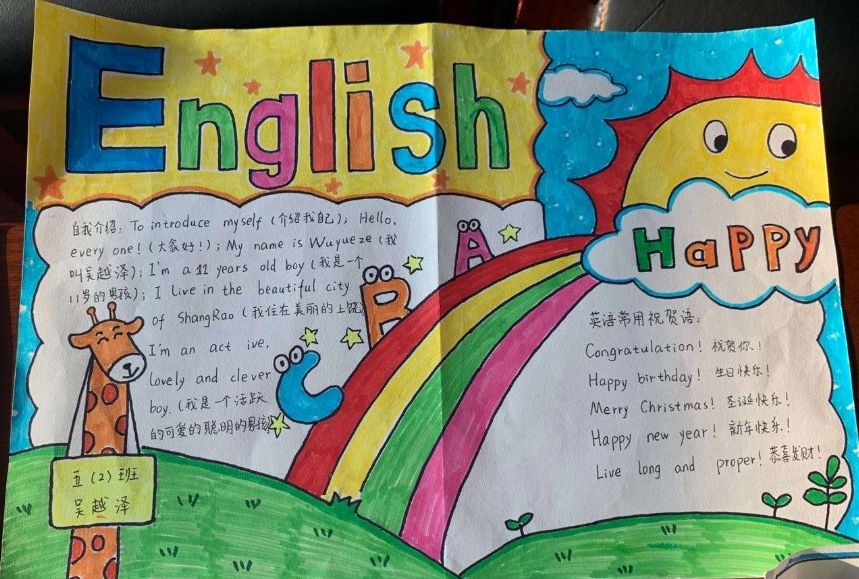 English
自我介绍: To introduce myself (介绍我自己); Hello,
every one! (大家好!); My name is Wuyueze (我
叫吴越泽); I'm a 11 years old boy (我是一个
11岁的男孩); I Live in the beautiful city
of ShangRao (我住在美丽的上饶)
I'm an act ive,
lovely and clever
boy. (我是一个活跃
的可爱的聪明的男孩)
A
B
C
五(2)班
吴越泽
HaPPy
英语常用祝贺语:
Congratulation! 祝贺你!
Happy birthday! 生日快乐!
Merry Christmas! 圣诞快乐!
Happy new year! 新年快乐!
Live long and proper! 恭喜发财!